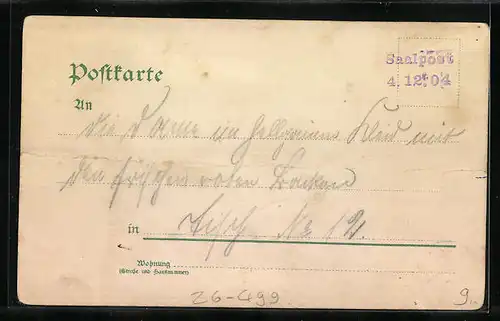 Saalpost
4. 12. 04
Postkarte
An
Die Dame im hellgrünen Kleid mit
den frischen roten Backen
in Tisch No 12.
Wohnung
(Straße und Hausnummer)
26-499
9.